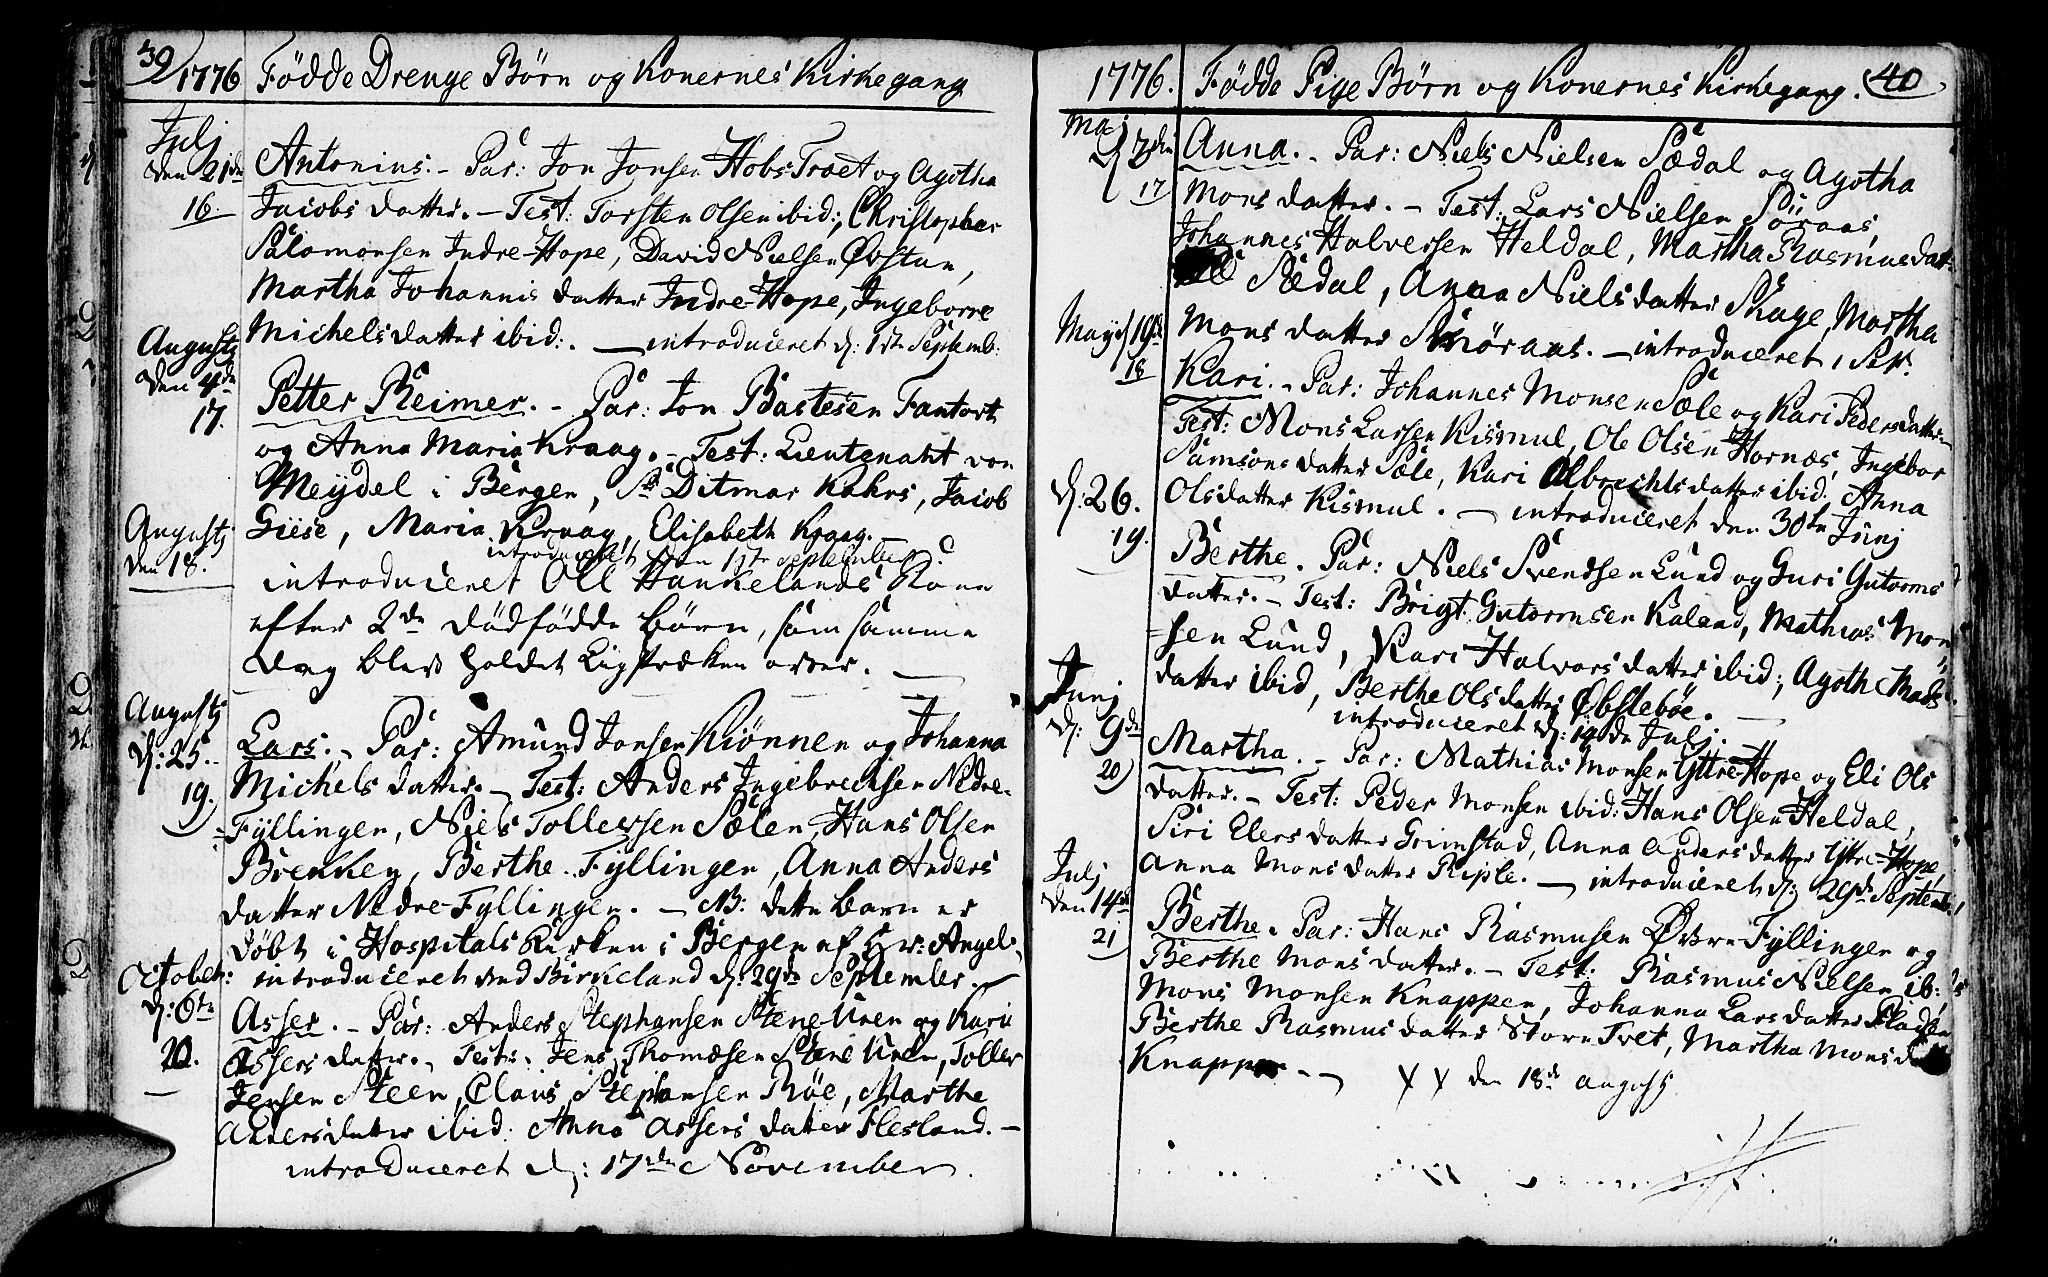 39 1776 Födde Drenge Børn og Konernes Kirkegang
Julj
den 21de Antonius. - Par: Jon Jonsen HobsTræet og Agotha
16. Jacobs datter. - Test: Torsten Olsen ibid:, Christopher
Salomonsen Indre-Hope, David Nielsen Øvstun,
Martha Johannis datter Indre-Hope, Ingeborre
Michelsdatter ibid:. - introduceret d: 1ste Septemb:
Augustj
den 4de Petter Reimer. - Par: Jon Bastesen Fantoft
17. og Anna Maria Kraag. - Test: Lieutenant von
Meydel i Bergen, Sr Ditmar Kahrs, Jacob
Giese, Maria Kraag, Elisabeth Kraag. -
introduceret den 1ste September
Augustj
den 18. introduceret Oll Haukelands Kone
efter 2de dödfödde Børn, som samme
dag blev holdet Ligpræken over. -
Augustj
d: 25. Lars. - Par: Amund Jonsen Kiönnen og Johanna
19. Michels datter. - Test: Anders Ingebrechsen Nedre-
Fyllingen, Niels Tollefsen Sælen, Hans Olsen
Brekken, Berthe Fyllingen, Anna Anders
datter Nedre-Fyllingen. - NB: dette barn er
döbt i Hospitals Kirken i Bergen af Hr: Angel.
introduceret ved Birkeland d: 29de September.
October:
d: 6te Asser. - Par: Anders Stephansen Stene Uren og Kari
20. Assers datter. - Test: Jens Thomæsen Stene Uren, Toller
Jensen Steen, Claus Stephansen Röe, Marthe
Andersdatter ibid: Anna Assers datter Flesland. -
introduceret d: 17de November.
1776. Födde Pige Børn og Konernes Kirkegang. 40
Maj
Anna. - Par: Niels Nielsen Sædal og Agotha
17 Mons datter. - Test: Lars Nielsen Söraas,
Johannes Halversen Heldal, Martha Rasmusdatt:
Sædal, Anna Nielsdatter Skage, Martha
Mons datter Smöraas. - introduceret
Maij d 19de
18 Kari. - Par: Johannes Monsen Sæle og Kari Pedersdatter -
Test: Mons Larsen Kismul, Ole Olsen Hornæs, Ingebor
Samsons datter Sæle, Kari Olbrechtsdatter ibid: Anna
Olsdatter Kismul. - introduceret den 30te Junj
d: 26.
19. Berthe. Par: Niels Svendsen Lund og Guri Gutorms
datter. - Test: Brigt Gutormsen Kaland, Mathias Mon
=sen Lund, Kari Halvorsdatter ibid:, Agoth Mads
datter ibid, Berthe Olsdatter Øbslebøe. -
introduceret d: 14de Julj.
Junj
d: 9de Martha. - Par: Mathias Monsen Yttre-Hope og Eli Ols
20) datter. - Test: Peder Monsen ibid: Hans Olsen Heldal,
Siri Elersdatter Grimstad, Anna Andersdatter Yttre-Hope,
Anna Mons datter Riple. - introduceret d: 29de Septemb:
Julj
den 14de Berthe. Par: Hans Rasmusen Øvre-Fyllingen og
21) Berthe Mons datter. - Test: Rasmus Nielsen ib:
Mons Monsen Knappen, Johanna Larsdatter
Berthe Rasmusdatter StoreTvet, Martha Mons
Knappen - den 18de augustj